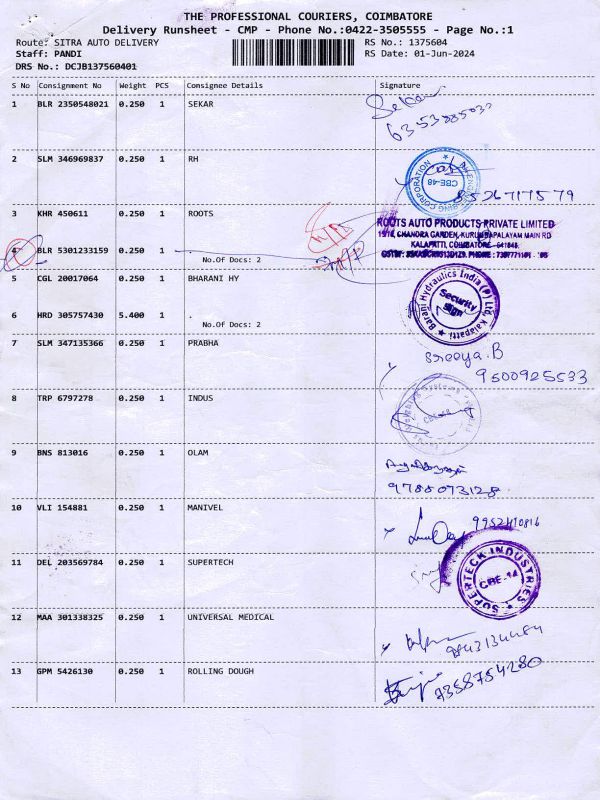 THE PROFESSIONAL COURIERS, COIMBATORE
Delivery Runsheet - CMP - Phone No.:0422-3505555 - Page No.:1
Route: SITRA AUTO DELIVERY RS No.: 1375604
Staff: PANDI RS Date: 01-Jun-2024
DRS No.: DCJB137560401
S No Consignment No Weight PCS Consignee Details Signature
1 BLR 2350548021 0.250 1 SEKAR
2 SLM 346969837 0.250 1 RH
CBE-48
3 KHR 450611 0.250 1 ROOTS
ROOTS AUTO PRODUCTS PRIVATE LIMITED
4 BLR 5301233159 0.250 1 .
No.Of Docs: 2
5 CGL 20017064 0.250 1 BHARANI HY
Barani Hydraulics India (P) Ltd, Kalapatti
Security
Sign
6 HRD 305757430 5.400 1 .
No.Of Docs: 2
7 SLM 347135366 0.250 1 PRABHA
Sreeya.B
9500925533
8 TRP 6797278 0.250 1 INDUS
9 BNS 813016 0.250 1 OLAM
9788073128
10 VLI 154881 0.250 1 MANIVEL
11 DEL 203569784 0.250 1 SUPERTECH
SUPERTECK INDUSTRIES
CBE-14
12 MAA 301338325 0.250 1 UNIVERSAL MEDICAL
13 GPM 5426130 0.250 1 ROLLING DOUGH
7358754280